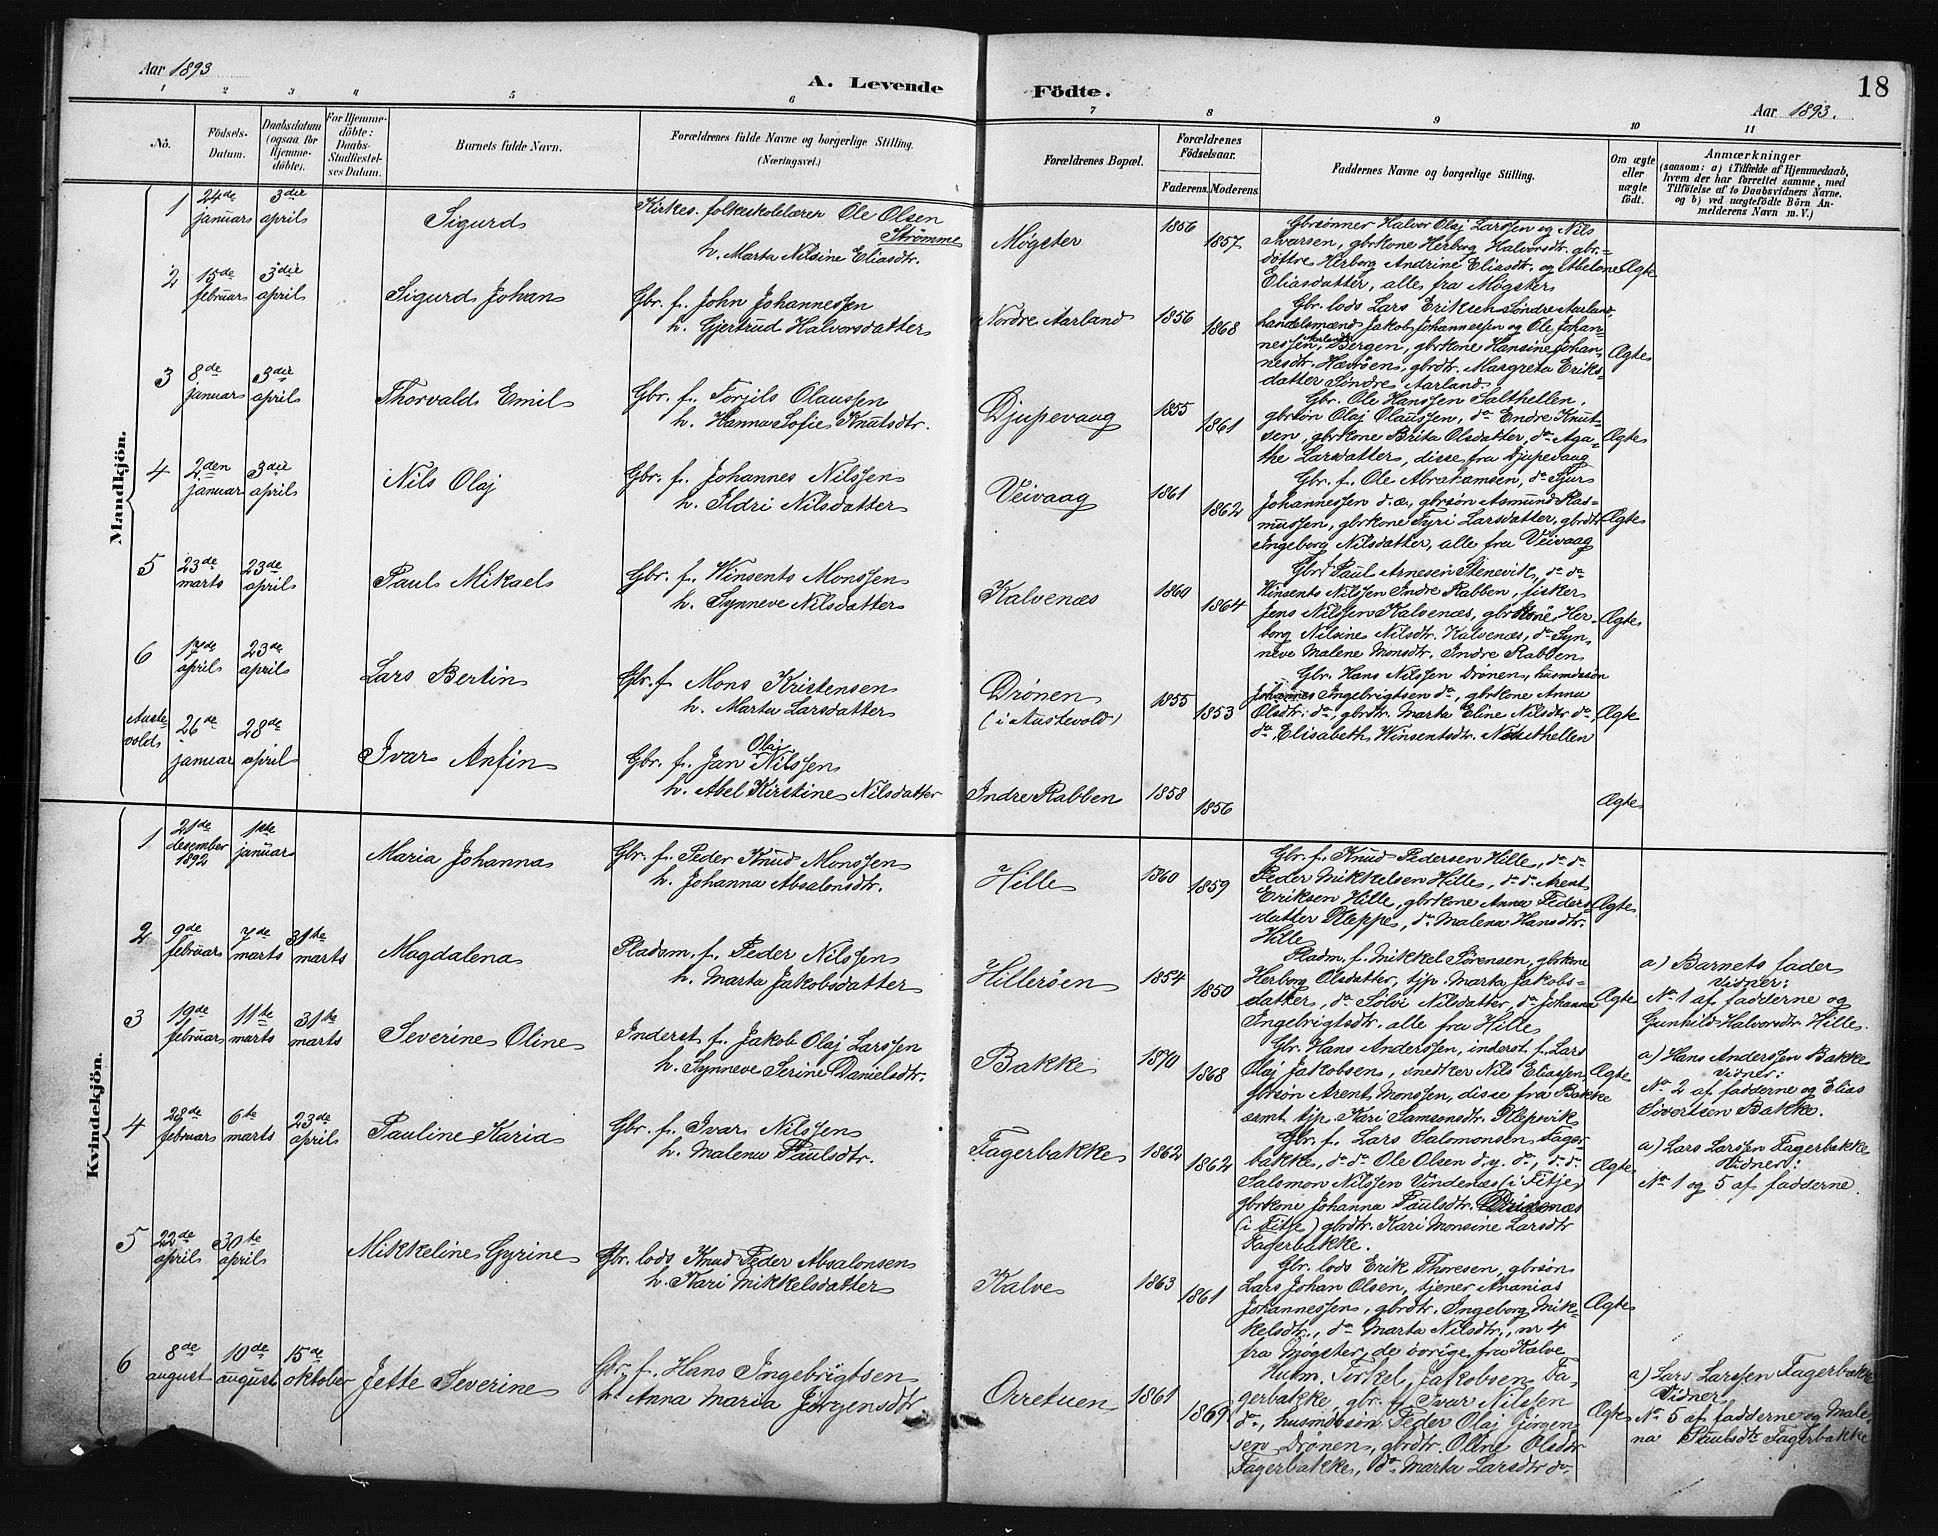 Aar 1893
A. Levende Födte.
18
Aar 1893.
1 2 3 4 5 6 7 8 9 10 11
No.
Födsels-Datum.
Daabsdatum (ogsaa for Hjemme-döbte).
For Hjemme-döbte: Daabs-Stadfæstel-ses Datum.
Barnets fulde Navn.
Forældrenes fulde Navne og borgerlige Stilling.
(Næringsvei.)
Forældrenes Bopæl.
Forældrenes Födselsaar.
Faderens. Moderens.
Faddernes Navne og borgerlige Stilling.
Om ægte eller uægte födt.
Anmærkninger
(saasom: a) i Tilfælde af Hjemmedaab,
hvem der har forrettet samme, med
Tilföielse af to Daabsvidners Navne.
og b) ved uægtefödte Börn An-
melderens Navn m. V.)
Mandkjön.
1 24de januar 3die april
Sigurd
Kirkes. folkeskolelærer Ole Olsen
Strømme
h. Marta Nilsine Eliasdtr.
Møgster
1856 1857
Gbrsønner Halvor Olaj Larssen og Nils
Ivarsen, gbrkone Herborg Halvorsdtr. gbr.
døttre Herborg Andrine Eliasdtr. og Abelone
Eliasdatter, alle fra Møgster
Ægte
2 15de februar 3die april
Sigurd Johan
Gbr. f. John Johannessen
h. Gjertrud Halvorsdatter
Nordre Aarland
1856 1868
Gbr. lods Lars Eriksen Søndre Aarland,
handelsmænd Jakob Johannessen og Ole Johan-
nessen, Aarland Bergen, gbrkone Hansine Johan-
nesdtr. Hævrøen, gbrdtr. Margreta Eriks-
datter Søndre Aarland.
Ægte
3 8de januar 3die april
Thorvald Emil
Gbr. f. Torjils Olaussen
h. Hanna Sofie Knutsdtr.
Djupevaag
1855 1861
Gbr. Ole Hanssen Salthellen,
gbrsøn Olaj Olaussen, do Endre Knut-
sen, gbrkone Brita Olsdatter, do Aga-
the Larsdatter, disse fra Djupevaag
Ægte
4 2den januar 3die april
Nils Olaj
Gbr. f. Johannes Nilssen
h. Ildri Nilsdatter
Veivaag
1861 1862
Gbr. f. Ole Abrahamsen, do Sjur
Johannessen d.æ., gbrsøn Asmund Ras-
mussen, gbrkone Fyri Larsdatter, gbrdtr
Ingeborg Nilsdatter, alle fra Veivaag
Ægte
5 23de marts 23de april
Paul Mikael
Gbr. f. Winsents Monssen
h. Synneve Nilsdatter
Kalvenæs
1860 1864
Gbr Paul Arnesen Stenevik, do do
Winsents Nilssen Indre Rabben, fisker
Jens Nilssen Kalvenæs, gbrkone Her-
borg Nilsine Nilsdtr. Kalvenæs, do Syn-
neve Malene Monsdtr. Indre Rabben
Ægte
6 17de april 23de april
Lars Bertin
Gbr. f Mons Kristensen
h. Marta Larsdatter
Drönen
(i Austevold)
1855 1853
Gbr. Hans Nilssen Drönen, husmdssön
Johannes Ingebrigtsen do, gbrkone Anna
Olsdtr. do, gbrdtr. Marta Eline Nilsdtr do,
do Elisabeth Winsentsdtr.
Ægte
Auste-vold 26de januar 28de april
Ivar Anfin
Gbr. f. Jan Olaj Nilssen
h. Abel Kirstine Nilsdatter
Indre Rabben
1858 1856
Ægte
Kvindekjön.
1 21de desember 1892 1ste januar
Maria Johanna
Gbr. f. Peder Knud Monssen
h. Johanna Absalonsdtr.
Hille
1860 1859
Gbr. f. Knud Pedersen Hille, do do
Peder Mikkelsen Hille, do do Arent
Eriksen Hille, gbrkone Anna Peders-
datter Kleppe, do Malena Hansdtr.
Hille
Ægte
2 9de februar 7de marts 31te marts
Magdalena
Pladsm. f. Peder Nilssen
h. Marta Jakobsdatter
Hillersöen
1854 1850
Pladm. f. Mikkel Sørensen, gbrkone
Herborg Olsdatter, tjp. Marta Jakobs-
datter, do Sølvi Nilsdatter, do Johanna
Ingebrigtsdtr. alle fra Hille
Ægte
a) Barnets fader
Vidner:
No 1 af fadderne og
Gunhild Halvorsdtr Hille.
3 19de februar 11te marts 31te marts
Severine Oline
Inderst f. Jakob Olaj Larssen
h. Synneve Serine Danielsdtr.
Bakke
1870 1868
Gbr. Hans Anderssen, inderst f. Lars
Olaj Jakobsen, snedker Nils Eliassen,
gbrsøn Arent Monssen, disse fra Bakke
samt tjp. Kari Samsonsdtr. Klepsvik
Ægte
a) Hans Anderssen Bakke
Vidner:
No 2 af fadderne og Elias
Sivertsen Bakke.
4 28de februar 6te marts 23de april
Pauline Karia
Gbr. f. Ivar Nilssen
h. Malena Paulsdtr.
Fagerbakke
1862 1862
Gbr. f. Lars Salomonsen Fager-
bakke, do do Ole Olsen d.y. do, do do
Salomon Nilssen Vindenæs (i Fitje)
gbrkone Johanna Paulsdtr.
(i Fitje) gbrdtr. Kari Monsine Larsdtr
Fagerbakke.
Ægte
a) Lars Larssen Fagerbakke
Vidner:
No 1 og 5 af fadderne.
5 22de april 30te april
Mikkeline Gyrine
Gbr. lods Knud Peder Absalonsen
h. Kari Mikkelsdatter
Kalve
1863 1861
Gbr. lods Erik Thoresen, gbrsøn
Lars Johan Olsen, tjener Ananias
Johannessen, gbrdtr. Ingeborg Mik-
kelsdtr., do Marta Nilsdtr., nr 4
fra Møgster, de øvrige fra Kalve
Ægte
6 8de august 10de august 15de oktober
Jette Severine
Gbr. f. Hans Ingebrigtsen
h. Anna Maria Jörgensdtr
Orretuen
1861 1869
Husm. Torkel Jakobsen Fa-
gerbakke, gbr. f. Ivar Nilssen
do, husmdssøn Peder Olaj Jörgen-
sen Drönen, gbrdtr. Oline Olsdtr
Fagerbakke, do Marta Larsdtr do
Ægte
a) Lars Larssen Fagerbakke
Vidner
No 5 af fadderne og Male-
na Paulsdtr Fagerbakke